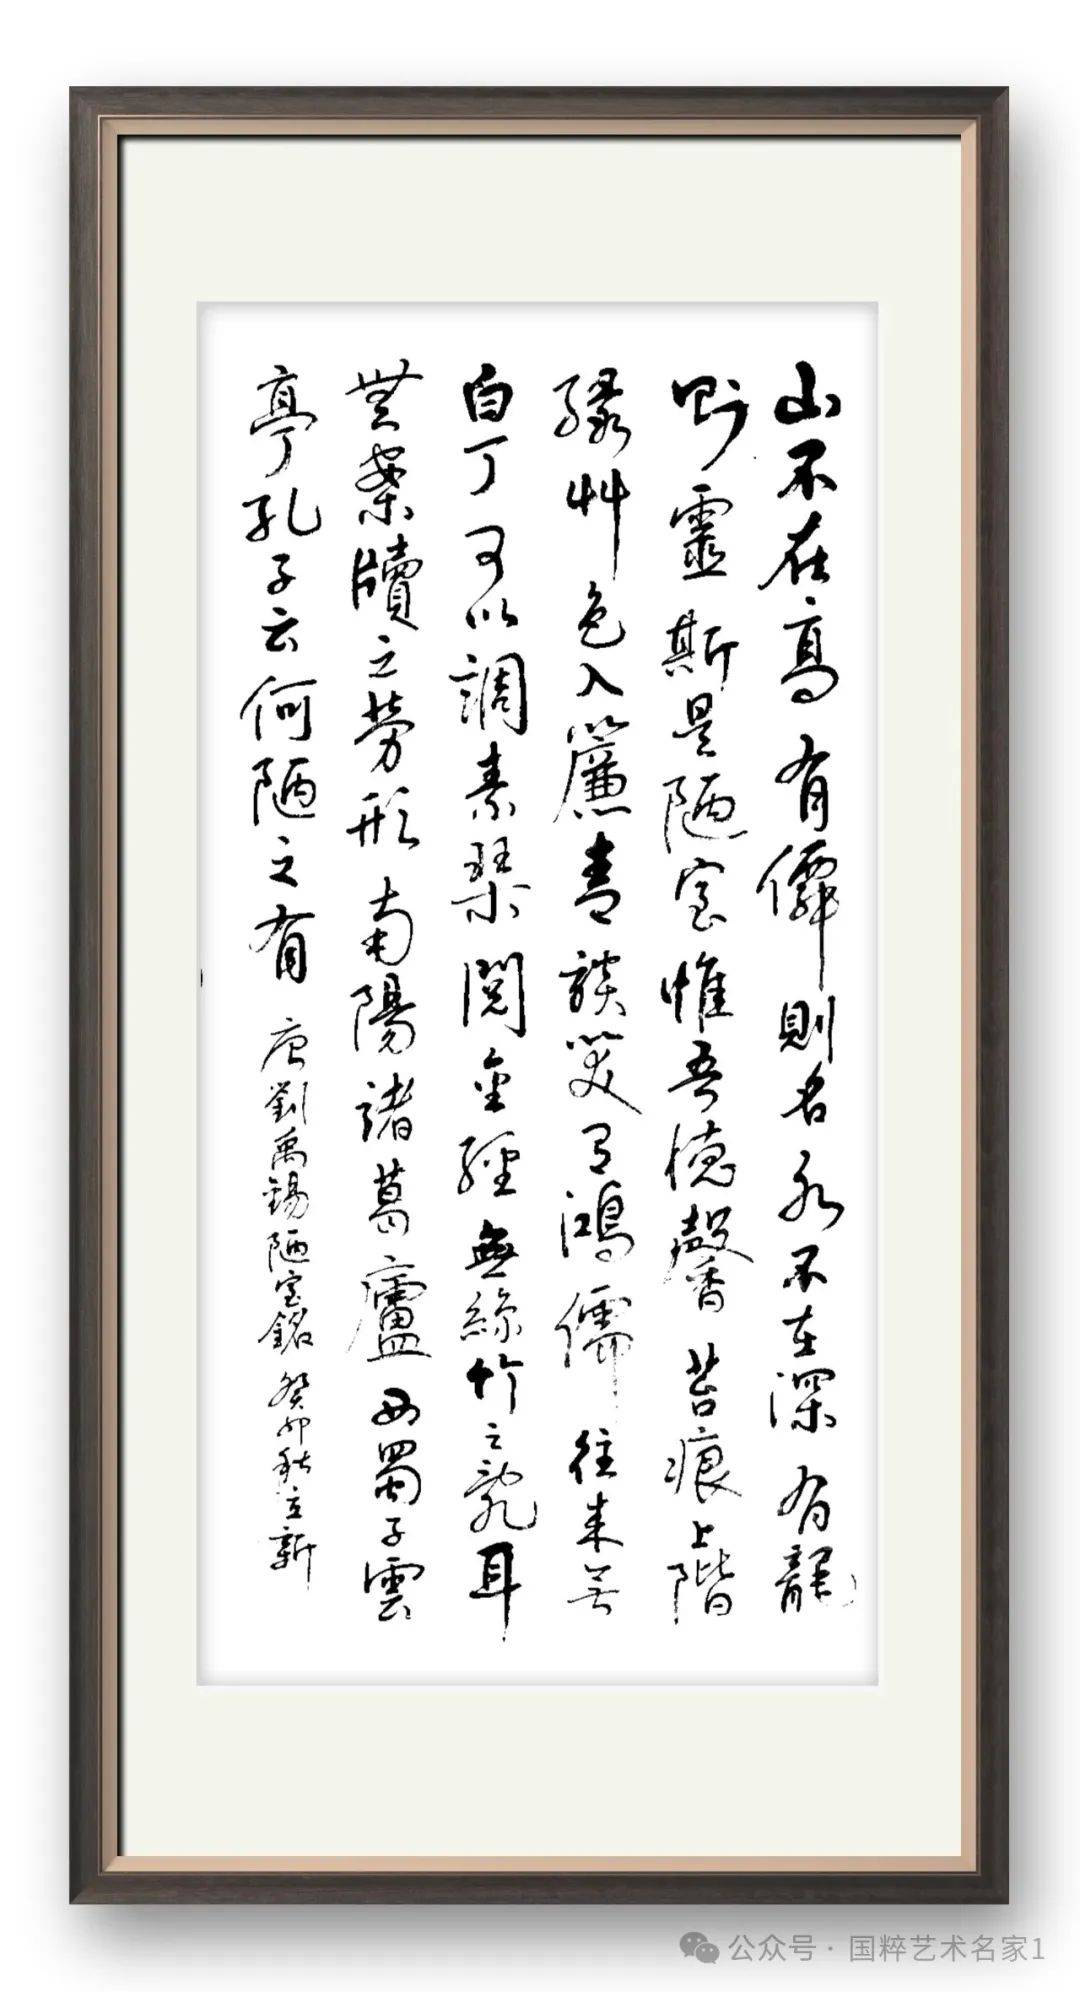 山不在高有僊則名水不在深有龍
則靈斯是陋室惟吾德馨苔痕上階
綠艸色入簾青談笑有鴻儒往來無
白丁可以調素琴閱金經無絲竹之亂耳
無案牘之勞形南陽諸葛廬西蜀子雲
亭孔子云何陋之有 唐劉禹錫陋室銘 癸卯秋立新
公众号·国粹艺术名家1